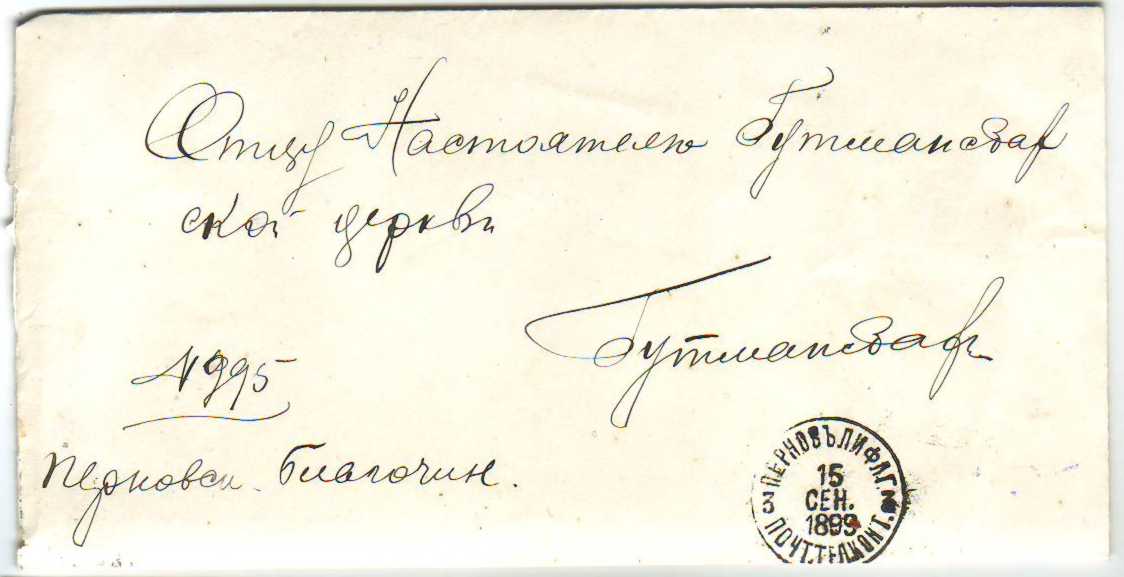 Отцу Настоятелю Гутмансбах
ской церкви
Гутмансбахъ
№ 995
Перновск. Благочин.
ПЕРНОВЪ ЛИФЛ. Г.
3 15 3
СЕН.
1899
ПОЧТ. ТЕЛ. КОНТ.